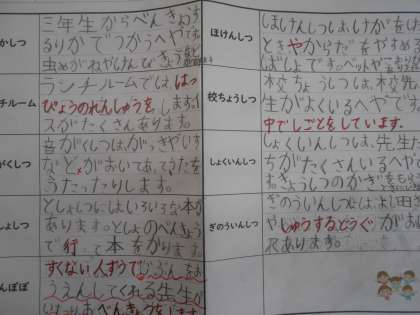 かしつ
三年生からべんきょうす
るりかでつかうへやです。
虫めがねやけんびきょう
チルーム
ランチルームでは、はっ
ぴょうのれんしゅうをします。イ
スがたくさんあります。
がくしつ
音がくしつは、がっきやいす
などがおいてあってうたを
うたったりします。
しょしつ
としょしつにはいろいろな本が
あります。としょのべんきょう
で行って本をかります。
んぽぽ
すくない人ずうでじぶんをお
うえんしてくれる先生が
べんきょうをします
ほけんしつ
ほけんしつは、けがをした
ときやからだをやすめる
ばしょです。ベッドや
校ちょうしつ
校ちょうしつは、校ちょう先
生がよくいるへやです。
中でしごとをしています。
しょくいんしつ
しょくいんしつは、先生た
ちがたくさんいるへやです。
きょうしつのかぎ
ぎのういんしつ
ぎのういんしつには、
しゅうするどうぐがお
れあります。